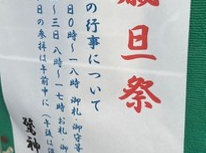 歳旦祭
の行事について
日0時～一八時 御札・御守等
～三日 八時～一七時 お札・御
日の参拝は午前中に
鷲神